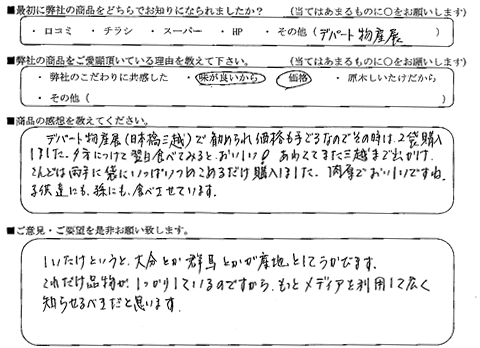 ■最初に弊社の商品をどちらでお知りになられましたか？　（当てはまるものに〇をお願いします）
・ 口コミ　・ チラシ　・ スーパー　・ HP　・ その他（デパート物産展）
■弊社の商品をご愛顧頂いている理由を教えて下さい。　（当てはまるものに〇をお願いします）
・ 弊社のこだわりに共感した　・ 味が良いから　・ 価格　・ 原木しいたけだから
・ その他（　）
■商品の感想を教えてください。
デパート物産展（日本橋三越）で勧められ価格も手ごろなのでその時は、2袋購入
しました。夕方につけて翌日食べてみると、おいしい!! あわててまた三越まで出かけ、
こんどは両手に袋にいっぱいつめこめるだけ購入しました。肉厚でおいしいですね。
子供達にも、孫にも、食べさせています。
■ご意見・ご要望を是非お願い致します。
しいたけというと、大分とか群馬とかが産地としてうかびます。
これだけ品物が、しっかりしているのですから、もっとメディアを利用して広く
知らせるべきだと思います。